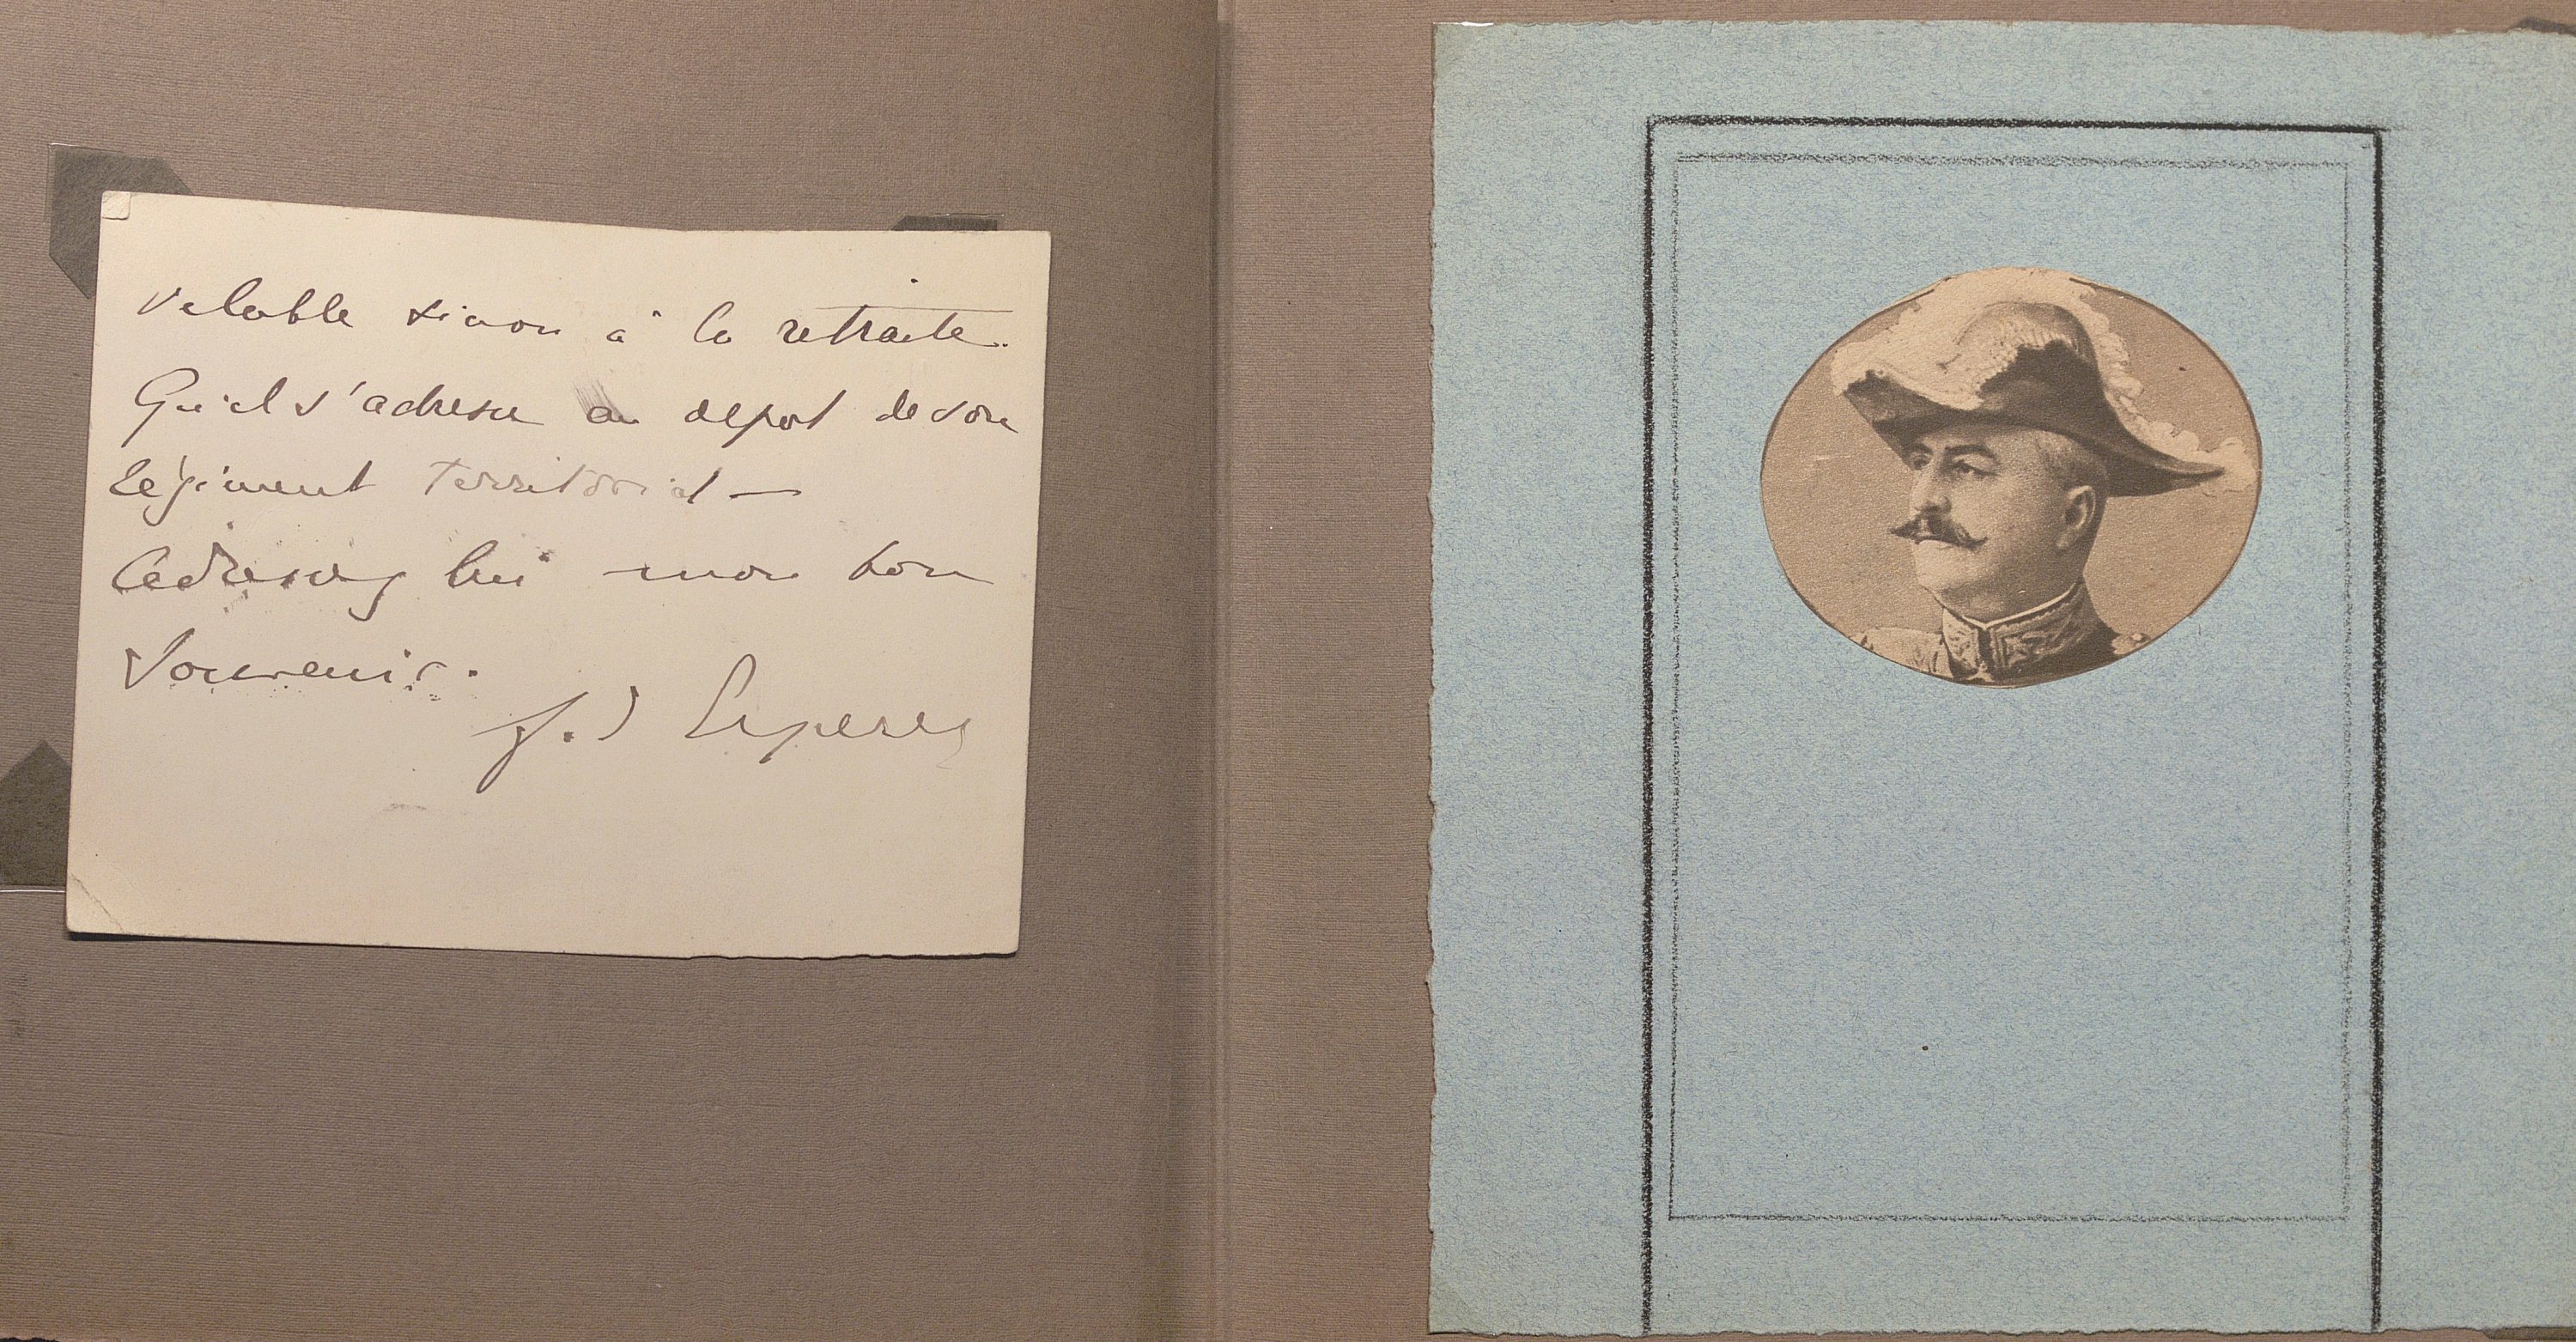 valable sinon à la retraite.
Qu'il s'adresse au dépot de son
régiment territorial —
Adressez lui mon bon
Souvenir.